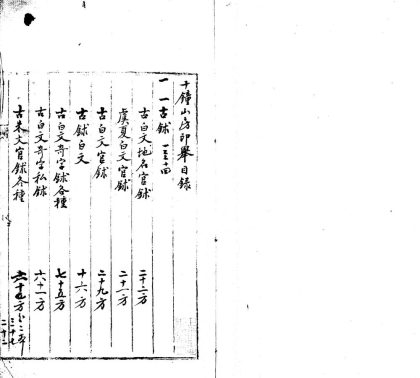 十鐘山房印舉目錄
一 一古鉨 一之三十四
古白文地名官鉨 二十二方
虞夏白文官鉨 二十一方
古白文官鉨 二十九方
古鉨白文 十六方
古白文奇字鉨各種 七十五方
古白文奇字私鉨 六十一方
古朱文官鉨各種 六十五方
三十七
二十二